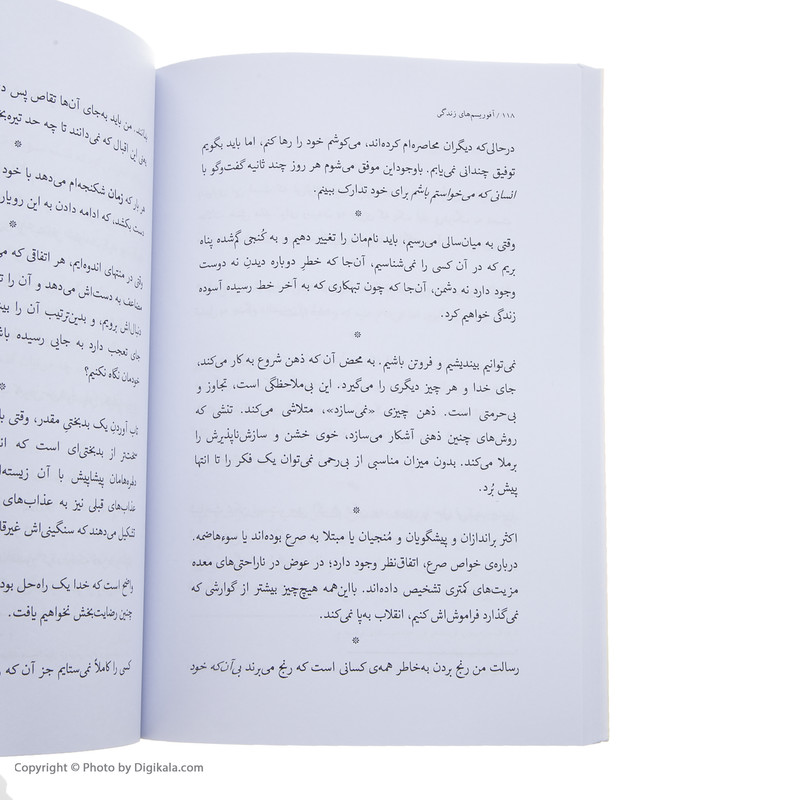 ۱۱۸ / آفوریسم‌های زندگی
درحالی‌که دیگران محاصره‌ام کرده‌اند، می‌کوشم خود را رها کنم، اما باید بگویم
توفیق چندانی نمی‌یابم. باوجوداین موفق می‌شوم هر روز چند ثانیه گفت‌وگو با
انسانی که می‌خواستم باشم برای خود تدارک ببینم.
*
وقتی به میان‌سالی می‌رسیم، باید نام‌مان را تغییر دهیم و به کُنجی گم‌شده پناه
بریم که در آن کسی را نمی‌شناسیم، آن‌جا که خطرِ دوباره دیدنِ نه دوست
وجود دارد نه دشمن، آن‌جا که چون تبهکاری که به آخر خط رسیده آسوده
زندگی خواهیم کرد.
*
نمی‌توانیم بیندیشیم و فروتن باشیم. به محض آن که ذهن شروع به کار می‌کند،
جای خدا و هر چیز دیگری را می‌گیرد. این بی‌ملاحظگی است، تجاوز و
بی‌حرمتی است. ذهن چیزی «نمی‌سازد»، متلاشی می‌کند. تنشی که
روش‌های چنین ذهنی آشکار می‌سازد، خوی خشن و سازش‌ناپذیرش را
برملا می‌کند. بدون میزان مناسبی از بی‌رحمی نمی‌توان یک فکر را تا انتها
پیش بُرد.
*
اکثر براندازان و پیشگویان و مُنجیان یا مبتلا به صرع بوده‌اند یا سوءهاضمه.
درباره‌ی خواص صرع، اتفاق‌نظر وجود دارد؛ در عوض در ناراحتی‌های معده
مزیت‌های کمتری تشخیص داده‌اند. بااین‌همه هیچ‌چیز بیشتر از گوارشی که
نمی‌گذارد فراموش‌اش کنیم، انقلاب به‌پا نمی‌کند.
*
رسالت من رنج بردن به‌خاطر همه‌ی کسانی است که رنج می‌برند بی‌آن‌که خود
من باید به‌جای آن‌ها تقاص پس
این اقبال که نمی‌دانند تا چه حد
*
هر بار که زمان شکنجه‌ام می‌دهد با خود
دست بکشد، که ادامه دادن به این
*
وقتی در منتهای اندوه‌ایم، هر اتفاقی که
به دست‌اش می‌دهد و آن را
دنبال‌اش برویم، و بدین‌ترتیب آن را
جای تعجب دارد به جایی رسیده
خودمان نگاه نکنیم؟
*
تاب آوردنِ یک بدبختیِ مقدر، وقتی
سخت‌تر از بدبختی‌ای است که
دلهره‌هامان پیشاپیش با آن
عذاب‌های قبلی نیز به عذاب‌های
تشکیل می‌دهند که سنگینی‌اش
واضح است که خدا یک راه‌حل
چنین رضایت‌بخش نخواهیم یافت.
کسی را کاملاً نمی‌ستایم جز آن که
Copyright © Photo by Digikala.com